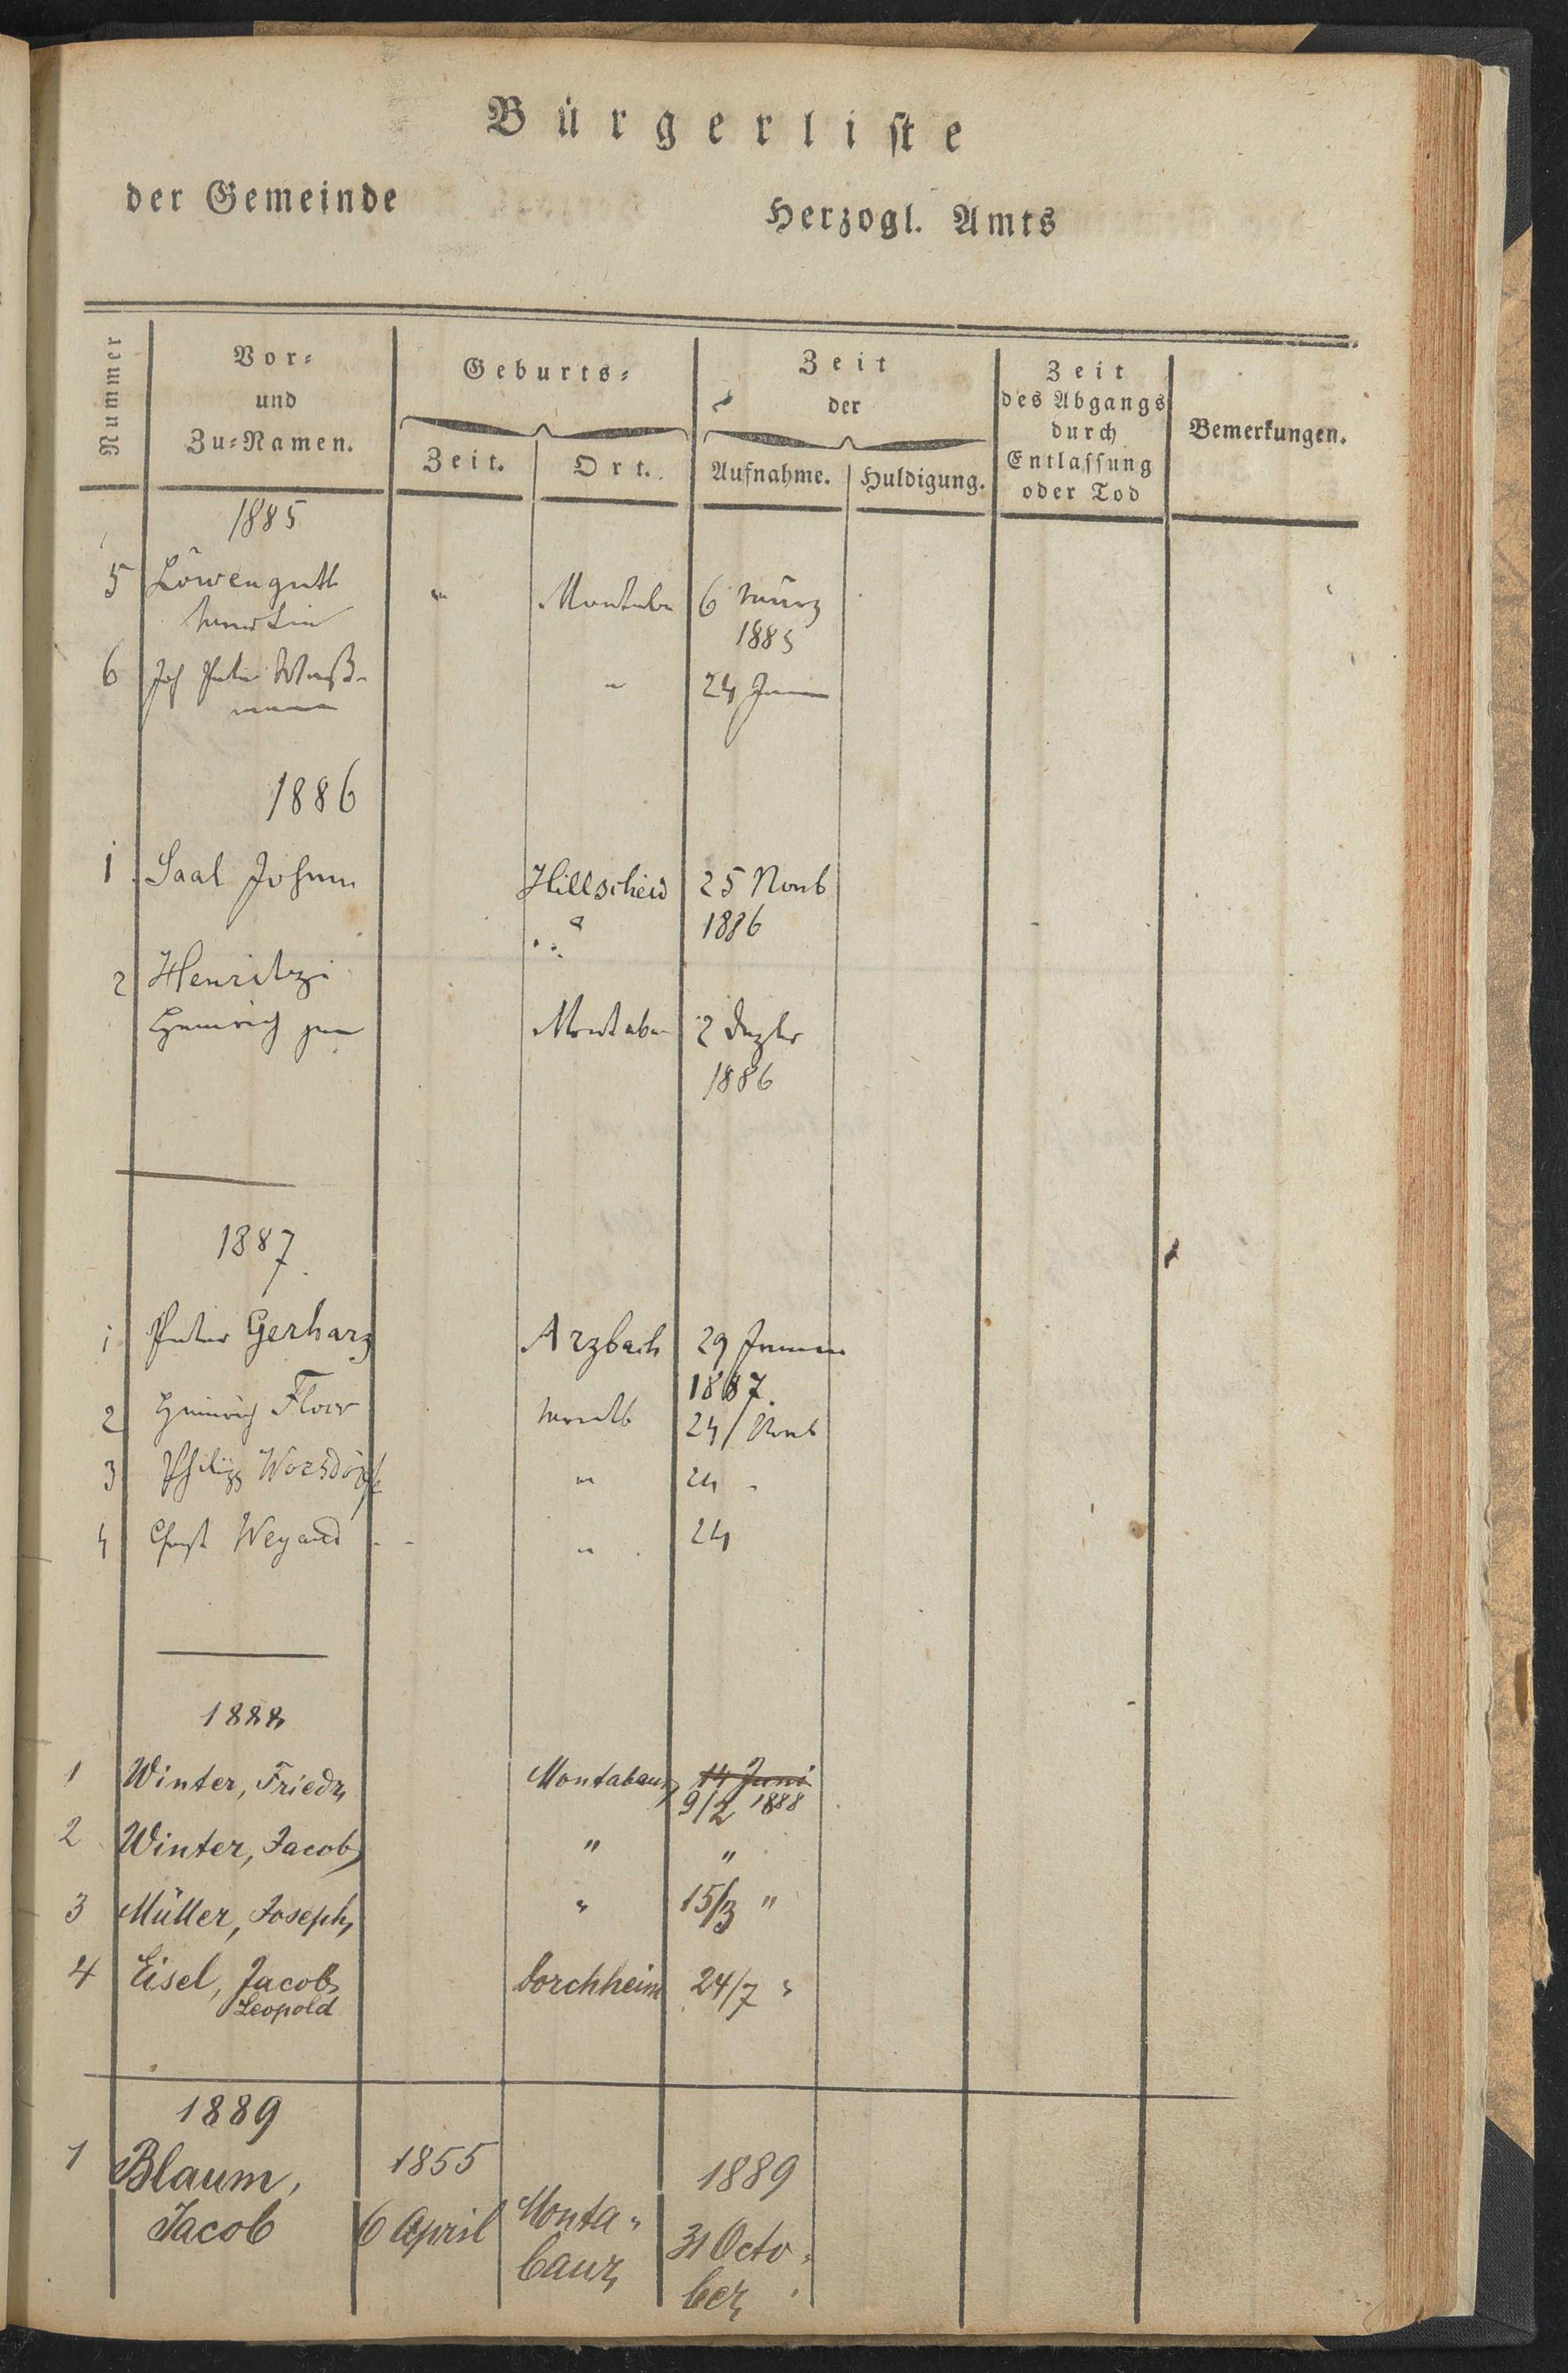 Bürgerliste
der Gemeinde Herzogl. Amts
Nummer
Vor- und Zu-Namen.
Geburts-
Zeit. Ort.
Zeit der
Aufnahme. Huldigung.
Zeit des Abgangs durch Entlassung oder Tod
Bemerkungen.
1885
5 Löwenguth " Montabr 6 März
Martin 1885
6 Joh Peter Wuß- " 24 Juni
mann
1886
1 Saal Johann Hillscheid 25 Novb
1886
2 Henritzi
Heinrich jun Montabr 2 Dezbr
1886
1887
1 Peter Gerharz Arzbach 29
1887.
2 Heinrich Flour Montb 24/ Novb
3 Philipp Worsdörfer " 24 "
4 Christ Weyand " 24
1888
1 Winter, Friedr, Montabaur, 14 Juni
9/2 1888
2 Winter, Jacob, " "
3 Müller, Joseph, " 15/3 "
4 Eisel, Jacob, Dorchheim 24/7 "
Leopold
1889
1 Blaum, 1855 1889
Jacob 6 April Monta- 31 Octo-
baur, ber,